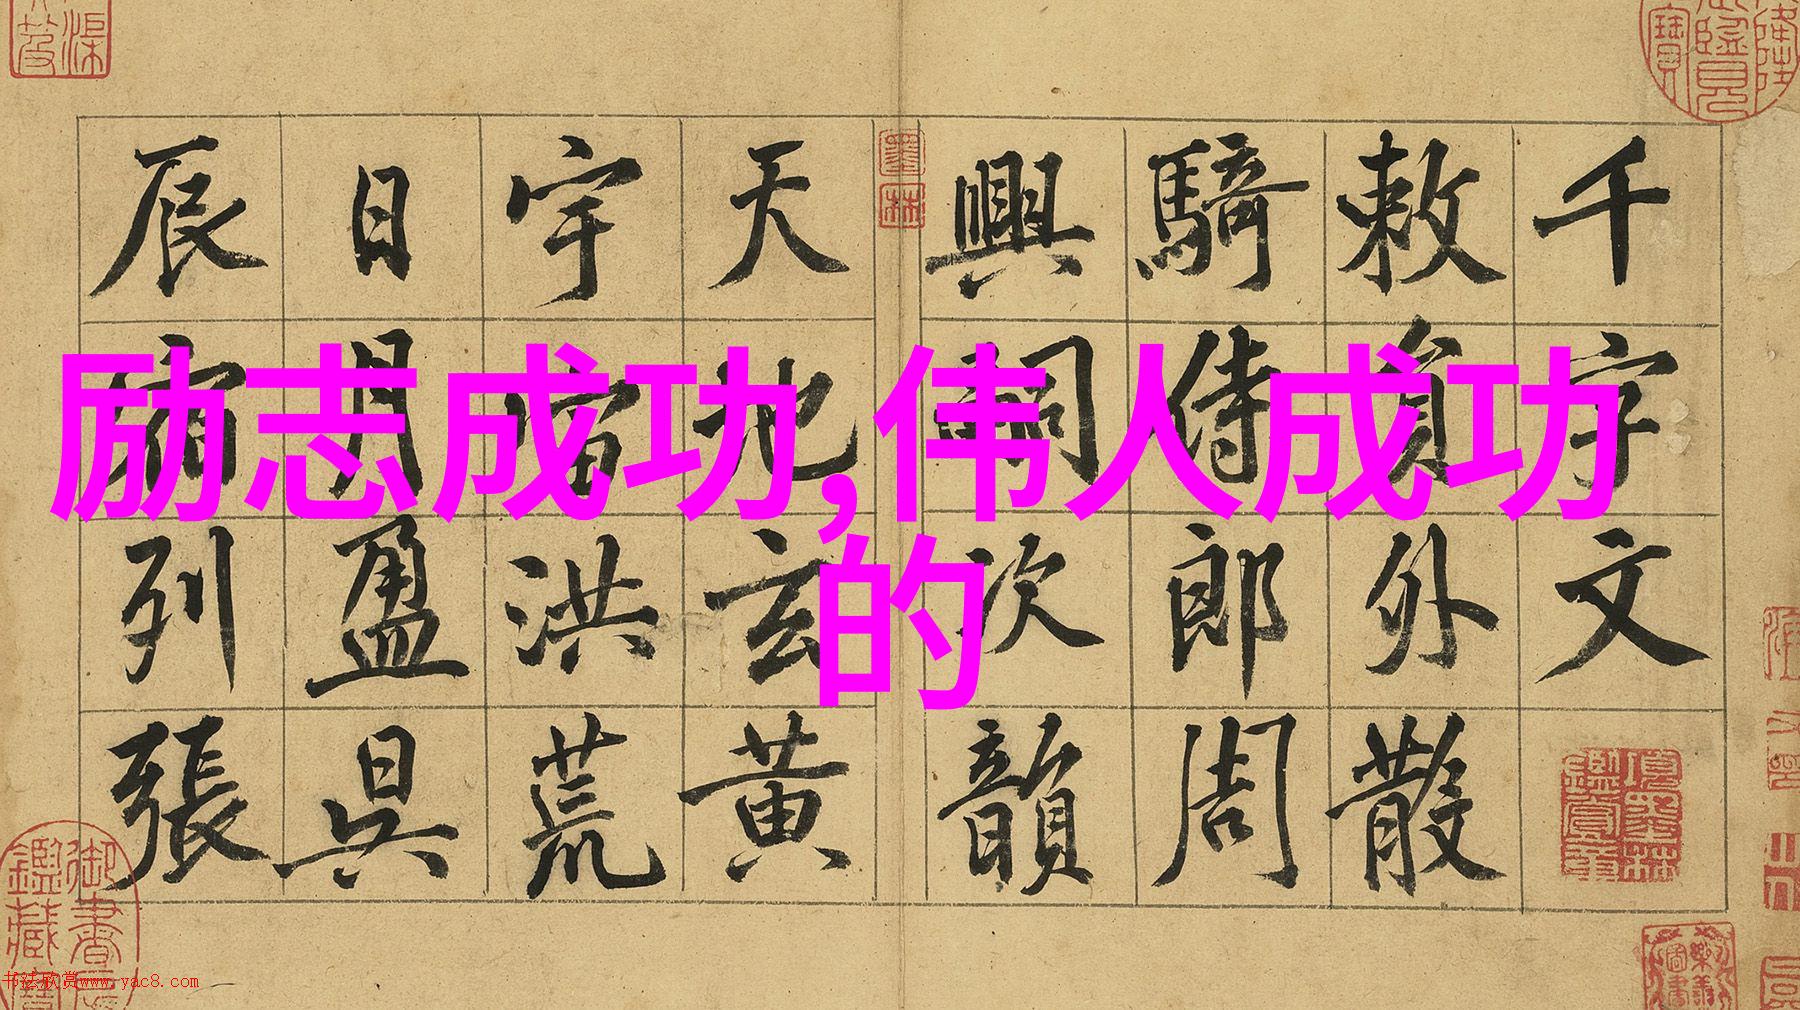 励志成功,伟人成功
的
千字文
敕員外散
騎侍郎周
興嗣次韻
天地玄黄
宇宙洪荒
日月盈昃
辰宿列張
书法欣赏www.yac8.com